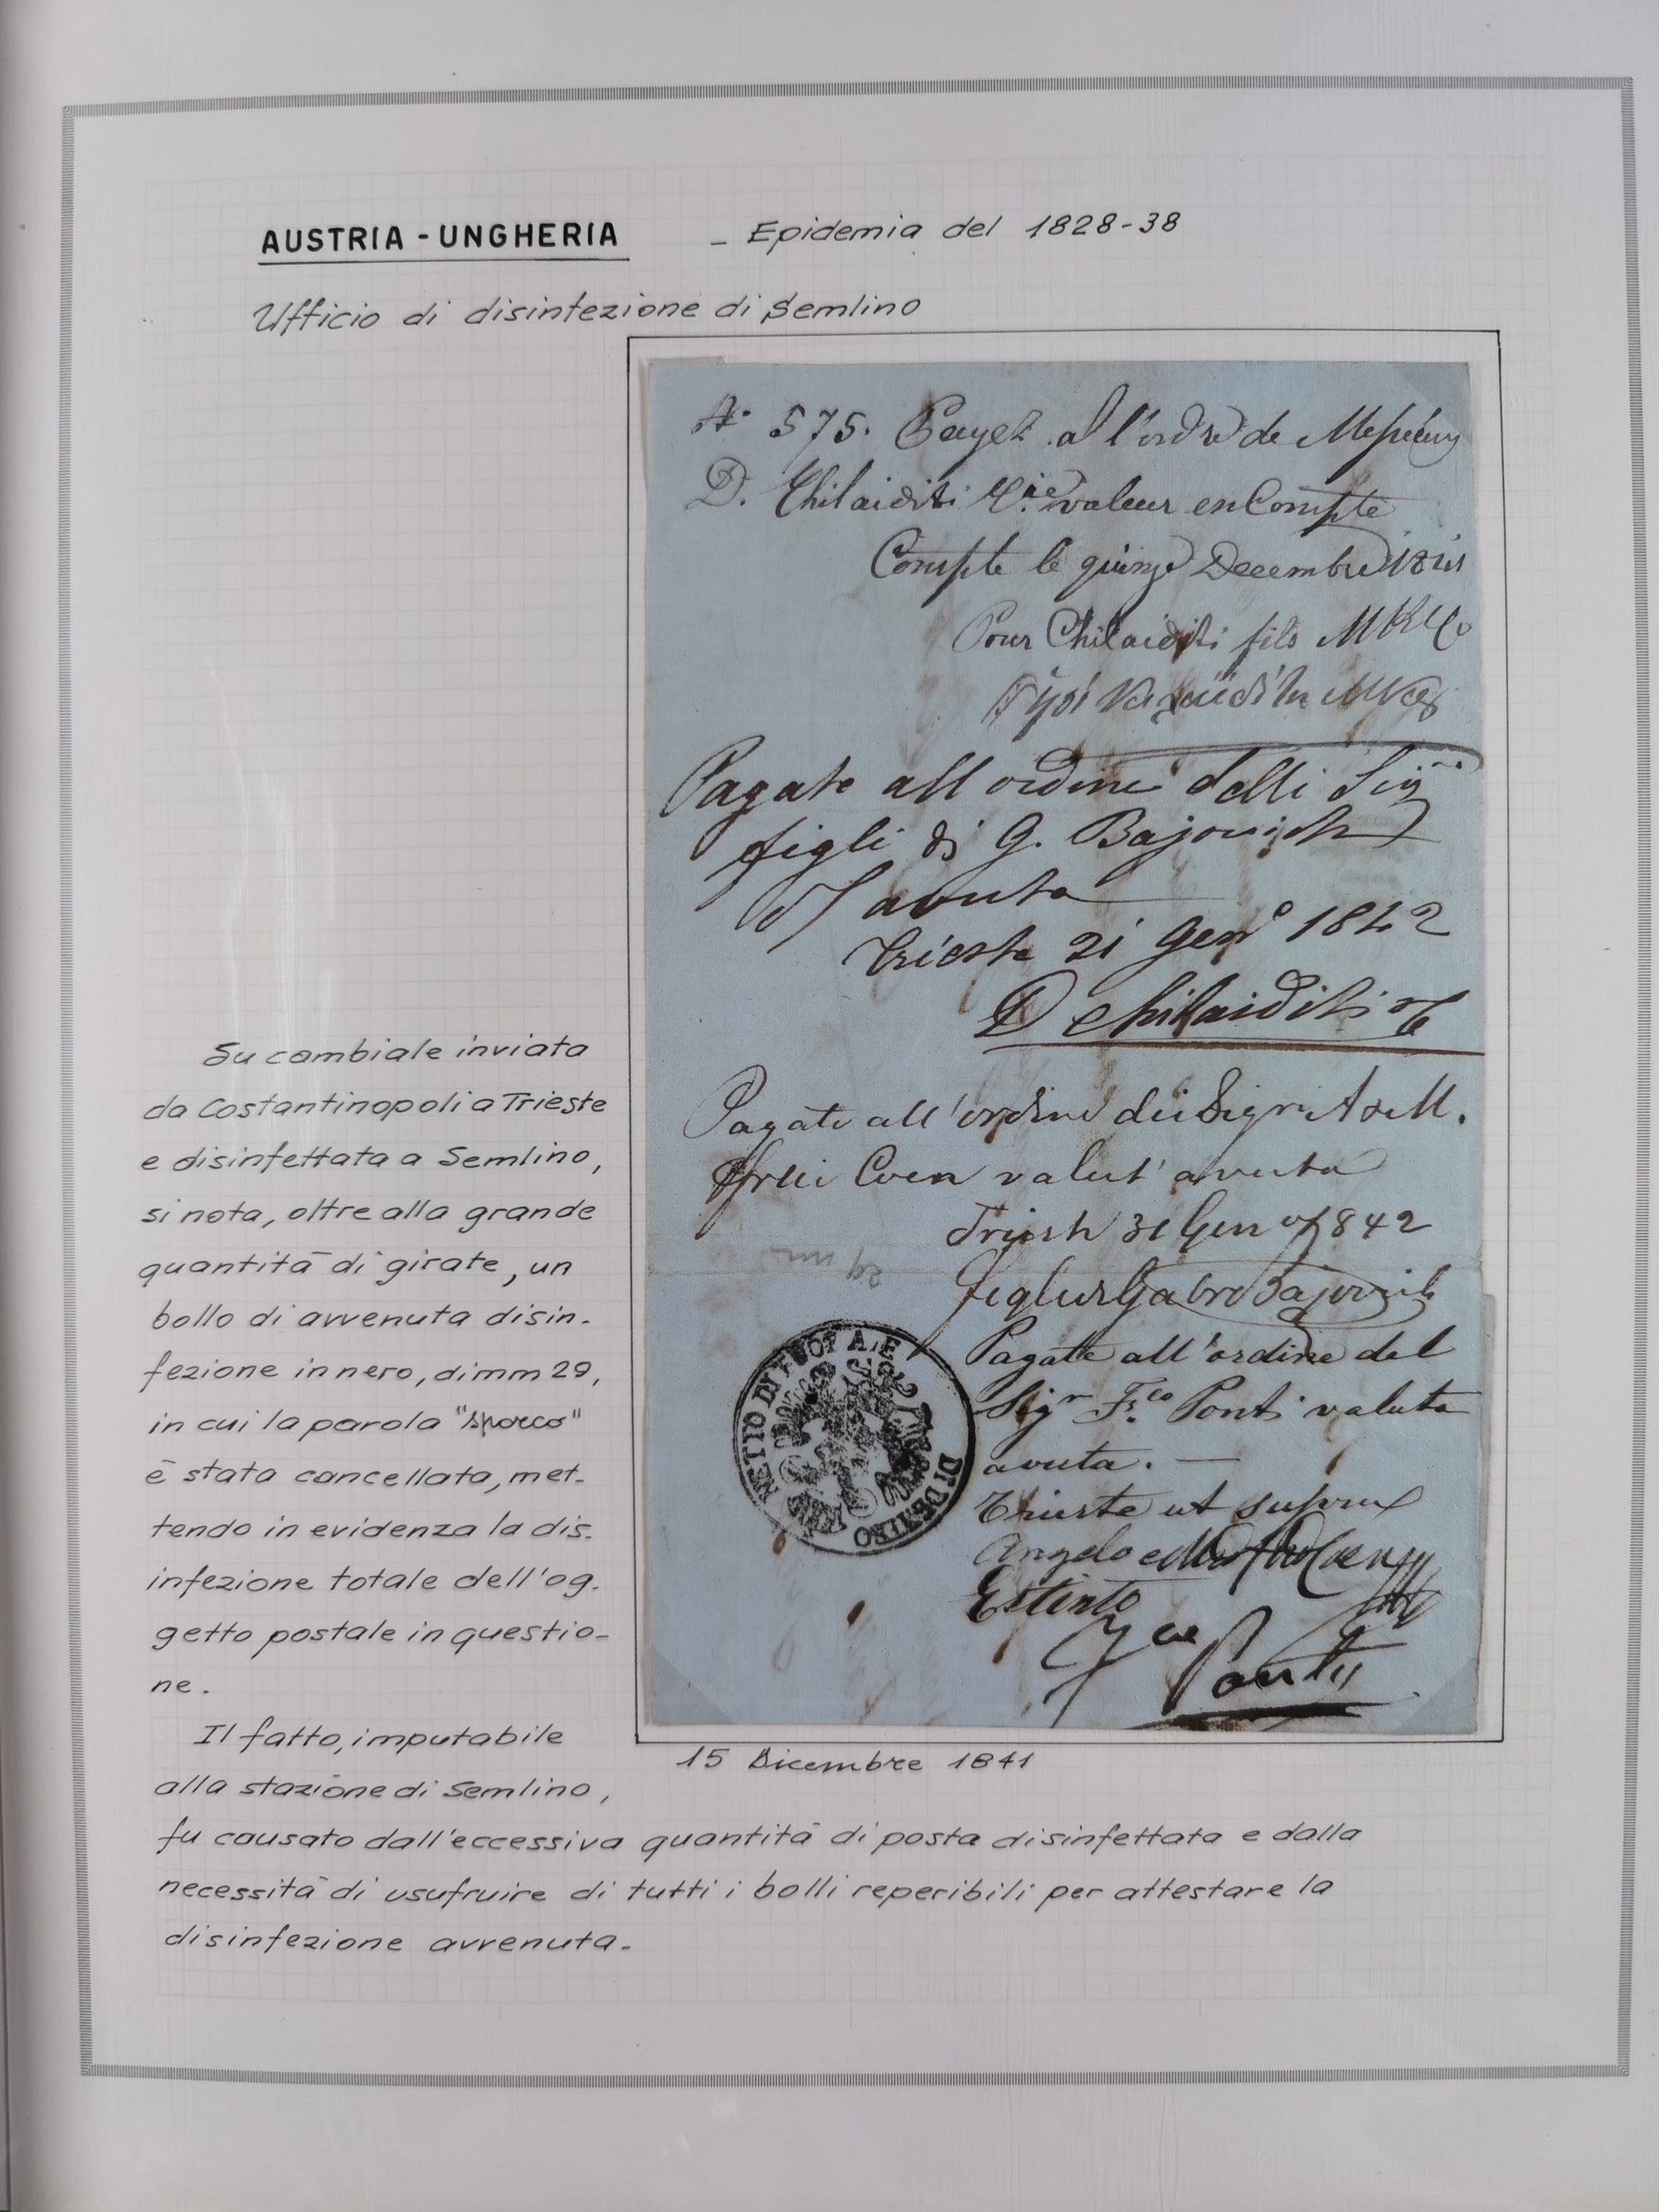 AUSTRIA - UNGHERIA - Epidemia del 1828-38
Ufficio di disinfezione di Semlino
N° 575. Payez a l'ordre de Messieurs
D. Chilaiditi Cie valeur en Compte
Compte le quinze Decembre 1841
Pour Chilaiditi fils
Pagate all ordine delli Sigri
figli di G. Bajovich
avuta
Trieste 21 Gen° 1842
D Chilaiditi
Pagate all'ordine dei Sigri A & M.
Coen valut' avuta
Triest 31 Gen 1842
Pagate all'ordine del
Sigr Fco Ponti valuta
avuta. —
Trieste ut supra
Angelo e
Estinto
Fco Ponti
29 mm
NETTO DI FUORI E
DI DENTRO
Su cambiale inviata
da Costantinopoli a Trieste
e disinfettata a Semlino,
si nota, oltre alla grande
quantità di girate, un
bollo di avvenuta disin-
fezione in nero, di mm 29,
in cui la parola "sporco"
è stata cancellata, met-
tendo in evidenza la dis-
infezione totale dell'og-
getto postale in questio-
ne.
Il fatto, imputabile
alla stazione di Semlino,
fu causato dall'eccessiva quantità di posta disinfettata e dalla
necessità di usufruire di tutti i bolli reperibili per attestare la
disinfezione avvenuta.
15 Dicembre 1841